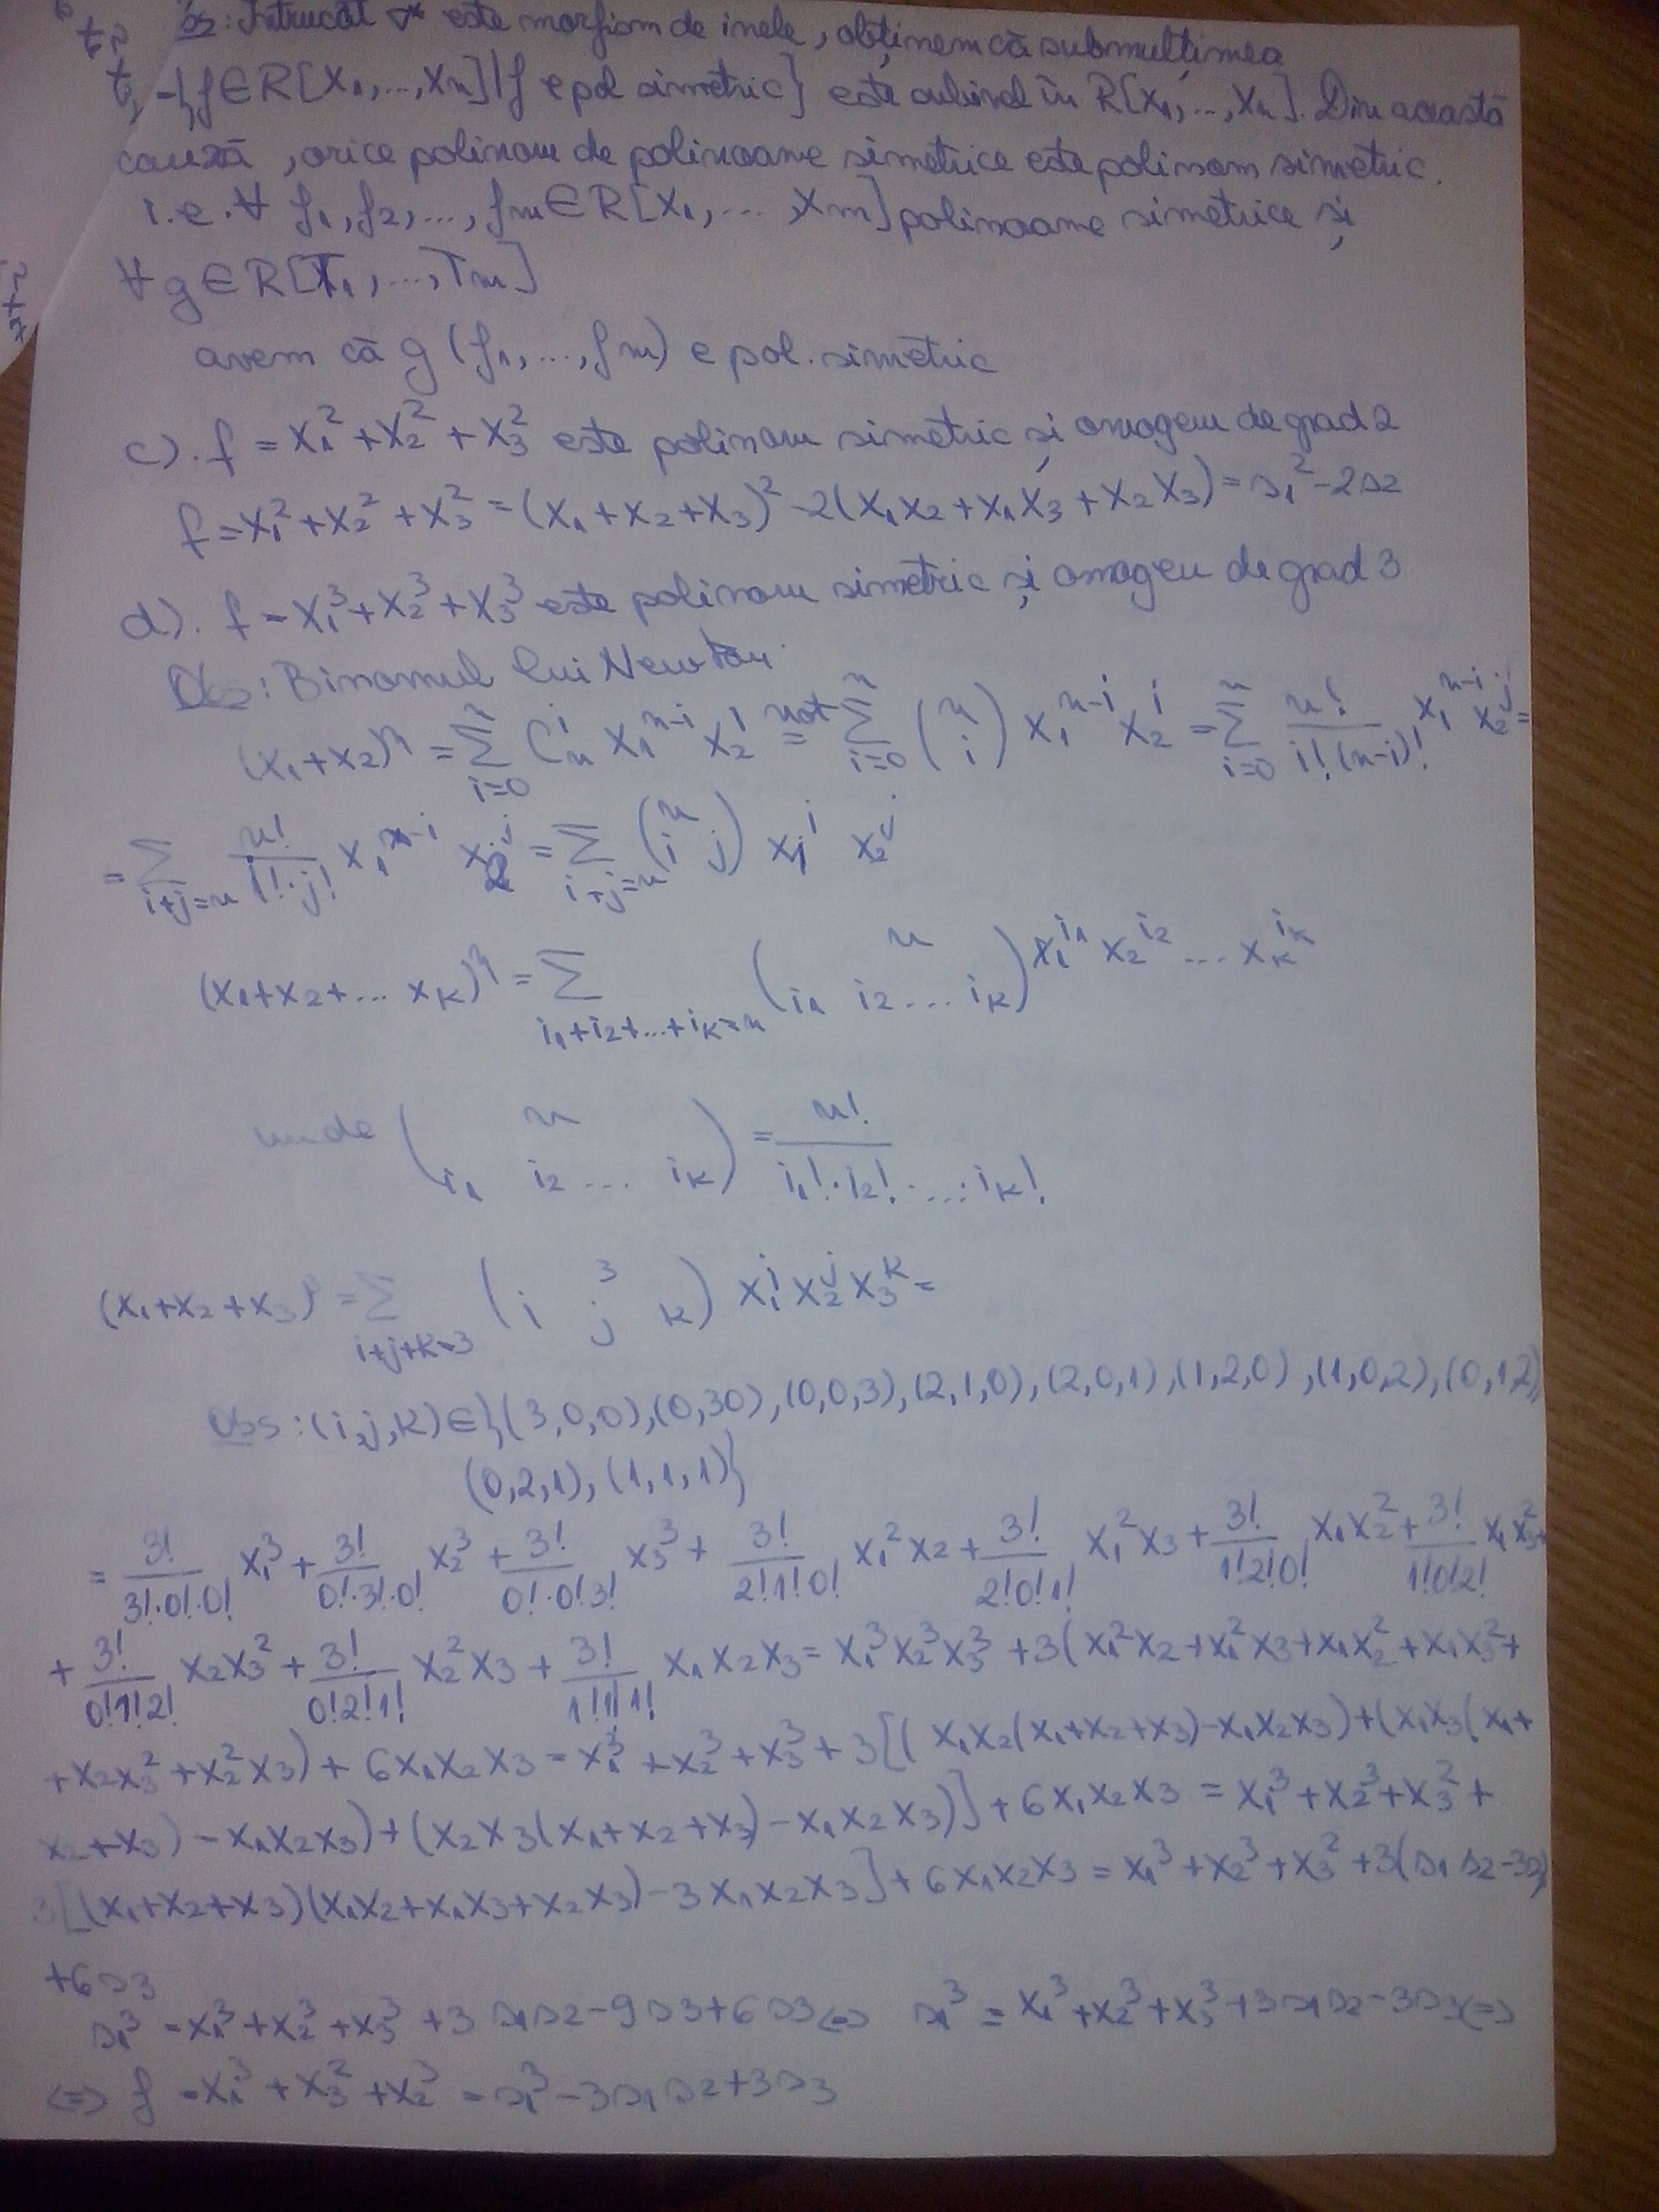 Obs: Întrucât σ* este morfism de inele, obținem că submulțimea
{f∈R[X₁,...,Xₙ] | f e pol simetric} este subinel în R[X₁,...,Xₙ]. Din această
cauză, orice polinom de polinoame simetrice este polinom simetric.
i.e. ∀ f₁, f₂, ..., fₘ∈R[X₁, ..., Xₙ] polinoame simetrice și
∀ g∈R[T₁, ..., Tₘ]
avem că g (f₁, ..., fₘ) e pol. simetric
c). f = X₁² + X₂² + X₃² este polinom simetric și omogen de grad 2
f = X₁² + X₂² + X₃² = (X₁+X₂+X₃)² - 2(X₁X₂+X₁X₃+X₂X₃) = s₁² - 2s₂
d). f = X₁³+X₂³+X₃³ este polinom simetric și omogen de grad 3
Obs: Binomul lui Newton
(x₁+x₂)ⁿ = Σ_{i=0}^{n} Cₙⁱ x₁ⁿ⁻ⁱ x₂ⁱ =^{not} Σ_{i=0}^{n} (n / i) x₁ⁿ⁻ⁱ x₂ⁱ = Σ_{i=0}^{n} n!/(i!(n-i)!) x₁ⁿ⁻ⁱ x₂ʲ =
= Σ_{i+j=n} n!/(i!·j!) x₁ⁿ⁻ⁱ x₂ʲ = Σ_{i+j=n} (n / i j) x₁ⁱ x₂ʲ
(x₁+x₂+... x_k)ⁿ = Σ_{i₁+i₂+...+i_k=n} (n / i₁ i₂ ... i_k) x₁^{i₁} x₂^{i₂} ... x_k^{i_k}
unde (n / i₁ i₂ ... i_k) = n!/(i₁!·i₂!·...·i_k!)
(x₁+x₂+x₃)³ = Σ_{i+j+k=3} (3 / i j k) x₁ⁱ x₂ʲ x₃ᵏ =
Obs: (i,j,k)∈{(3,0,0),(0,30),(0,0,3),(2,1,0),(2,0,1),(1,2,0),(1,0,2),(0,1,2)
(0,2,1),(1,1,1)}
= 3!/(3!·0!·0!) x₁³ + 3!/(0!·3!·0!) x₂³ + 3!/(0!·0!3!) x₃³ + 3!/(2!1!0!) x₁²x₂ + 3!/(2!0!1!) x₁²x₃ + 3!/(1!2!0!) x₁x₂² + 3!/(1!0!2!) x₁x₃²+
+ 3!/(0!1!2!) x₂x₃² + 3!/(0!2!1!) x₂²x₃ + 3!/(1!1!1!) x₁x₂x₃ = x₁³x₂³x₃³ + 3(x₁²x₂+x₁²x₃+x₁x₂²+x₁x₃²+
+x₂x₃²+x₂²x₃) + 6x₁x₂x₃ = x₁³+x₂³+x₃³+3[(x₁x₂(x₁+x₂+x₃)-x₁x₂x₃)+(x₁x₃(x₁+
x₂+x₃) - x₁x₂x₃)+(x₂x₃(x₁+x₂+x₃)-x₁x₂x₃)]+6x₁x₂x₃ = x₁³+x₂³+x₃²+
3[(x₁+x₂+x₃)(x₁x₂+x₁x₃+x₂x₃)-3x₁x₂x₃]+6x₁x₂x₃ = x₁³+x₂³+x₃²+3(s₁s₂-3s₃)
+6s₃
s₁³ = x₁³+x₂³+x₃³+3s₁s₂-9s₃+6s₃ ⇔ s₁³ = x₁³+x₂³+x₃³+3s₁s₂-3s₃ ⇔
⇔ f = x₁³+x₃²+x₂³ = s₁³-3s₁s₂+3s₃